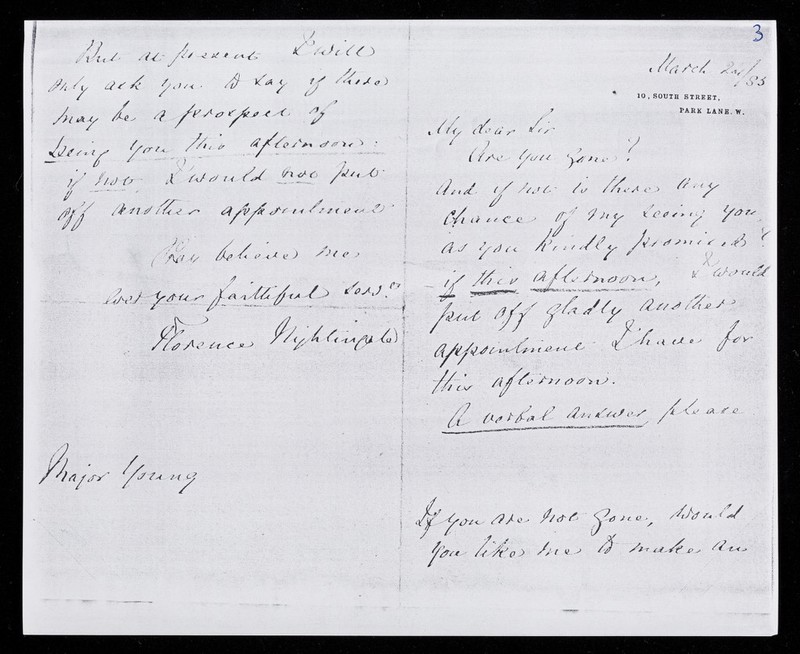 3
March 24/85
10, SOUTH STREET,
PARK LANE. W.
My dear Sir
Are you gone?
And if not is there any
chance of my seeing you,
as you kindly promised?
if this afternoon, I would
put off gladly another
appointment I have for
this afternoon.
A verbal answer please
If you are not gone, would
you like me to make an
But at present I will
only ask you to say if there
may be a prospect of
seeing you this afternoon:
if not I would not put
off another appointment
Pray believe me
ever your faithful servt
Florence Nightingale
Major Young